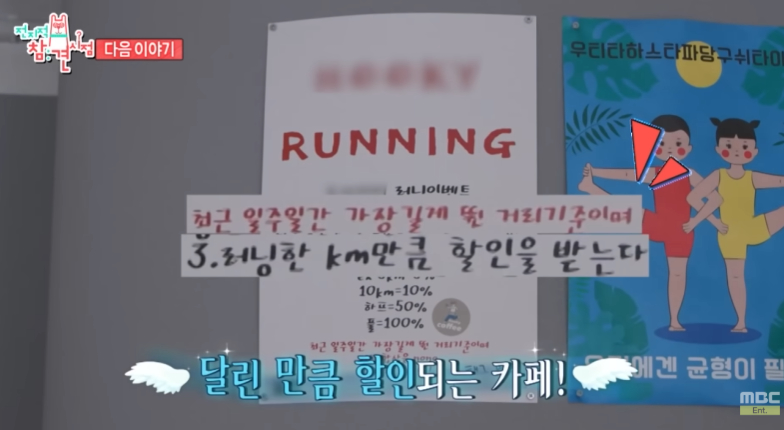 전지적
참견시점
다음 이야기
RUNNING
러너이벤트
우티타하스타파당구쉬타
최근 일주일간 가장길게 뛴 거리기준이며
3.러닝한 km만큼 할인을 받는다
10km=10%
하프=50%
풀=100%
최근 일주일간 가장길게 뛴 거리기준이며
coffee
균형이
달린 만큼 할인되는 카페!
MBC
Ent.